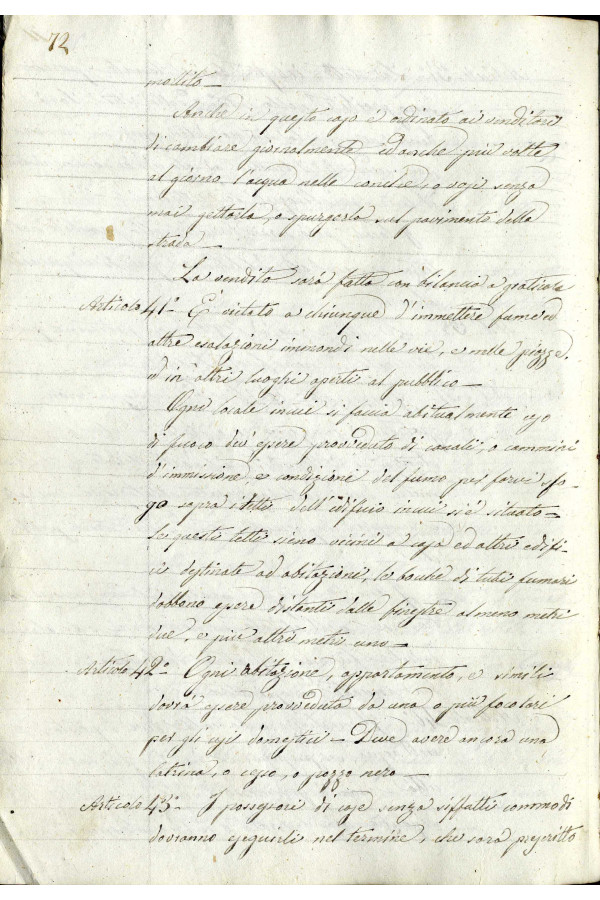 72
mollito —
Anche in questo caso è ordinato ai venditori
di cambiare giornalmente ed anche più volte
al giorno l'acqua nelle conche, o vasi senza
mai gettarla, o spurgarla sul pavimento della
strada —
La vendita sarà fatta con bilancia a graticola
Articolo 41° È vietato a chiunque d'immettere fumo ed
altre esalazioni immondi nelle vie, e nelle piazze
ed in altri luoghi aperti al pubblico —
Ogni locale in cui si faccia abitualmente uso
di fuoco dev'essere provveduto di canali, o cammini
d'immissione, e condizioni del fumo per farvi sfo-
go sopra i tetti dell'edificio in cui si è situato —
Se questi tetti sieno vicini a case ed altri edifi-
cii destinate ad abitazioni, le bocche di tubi fumari
dobbono essere distanti dalle finestre almeno metri
due, e più altri metri uno —
Articolo 42° Ogni abitazione, appartamento, e simili
dovrà essere provveduta da una o più focolari
per gli usi domestici — Deve avere ancora una
latrina, o cesso, o pozzo nero —
Articolo 43° I possessori di case senza siffatti commodi
dovranno eseguirli nel termine, che sarà prescritto